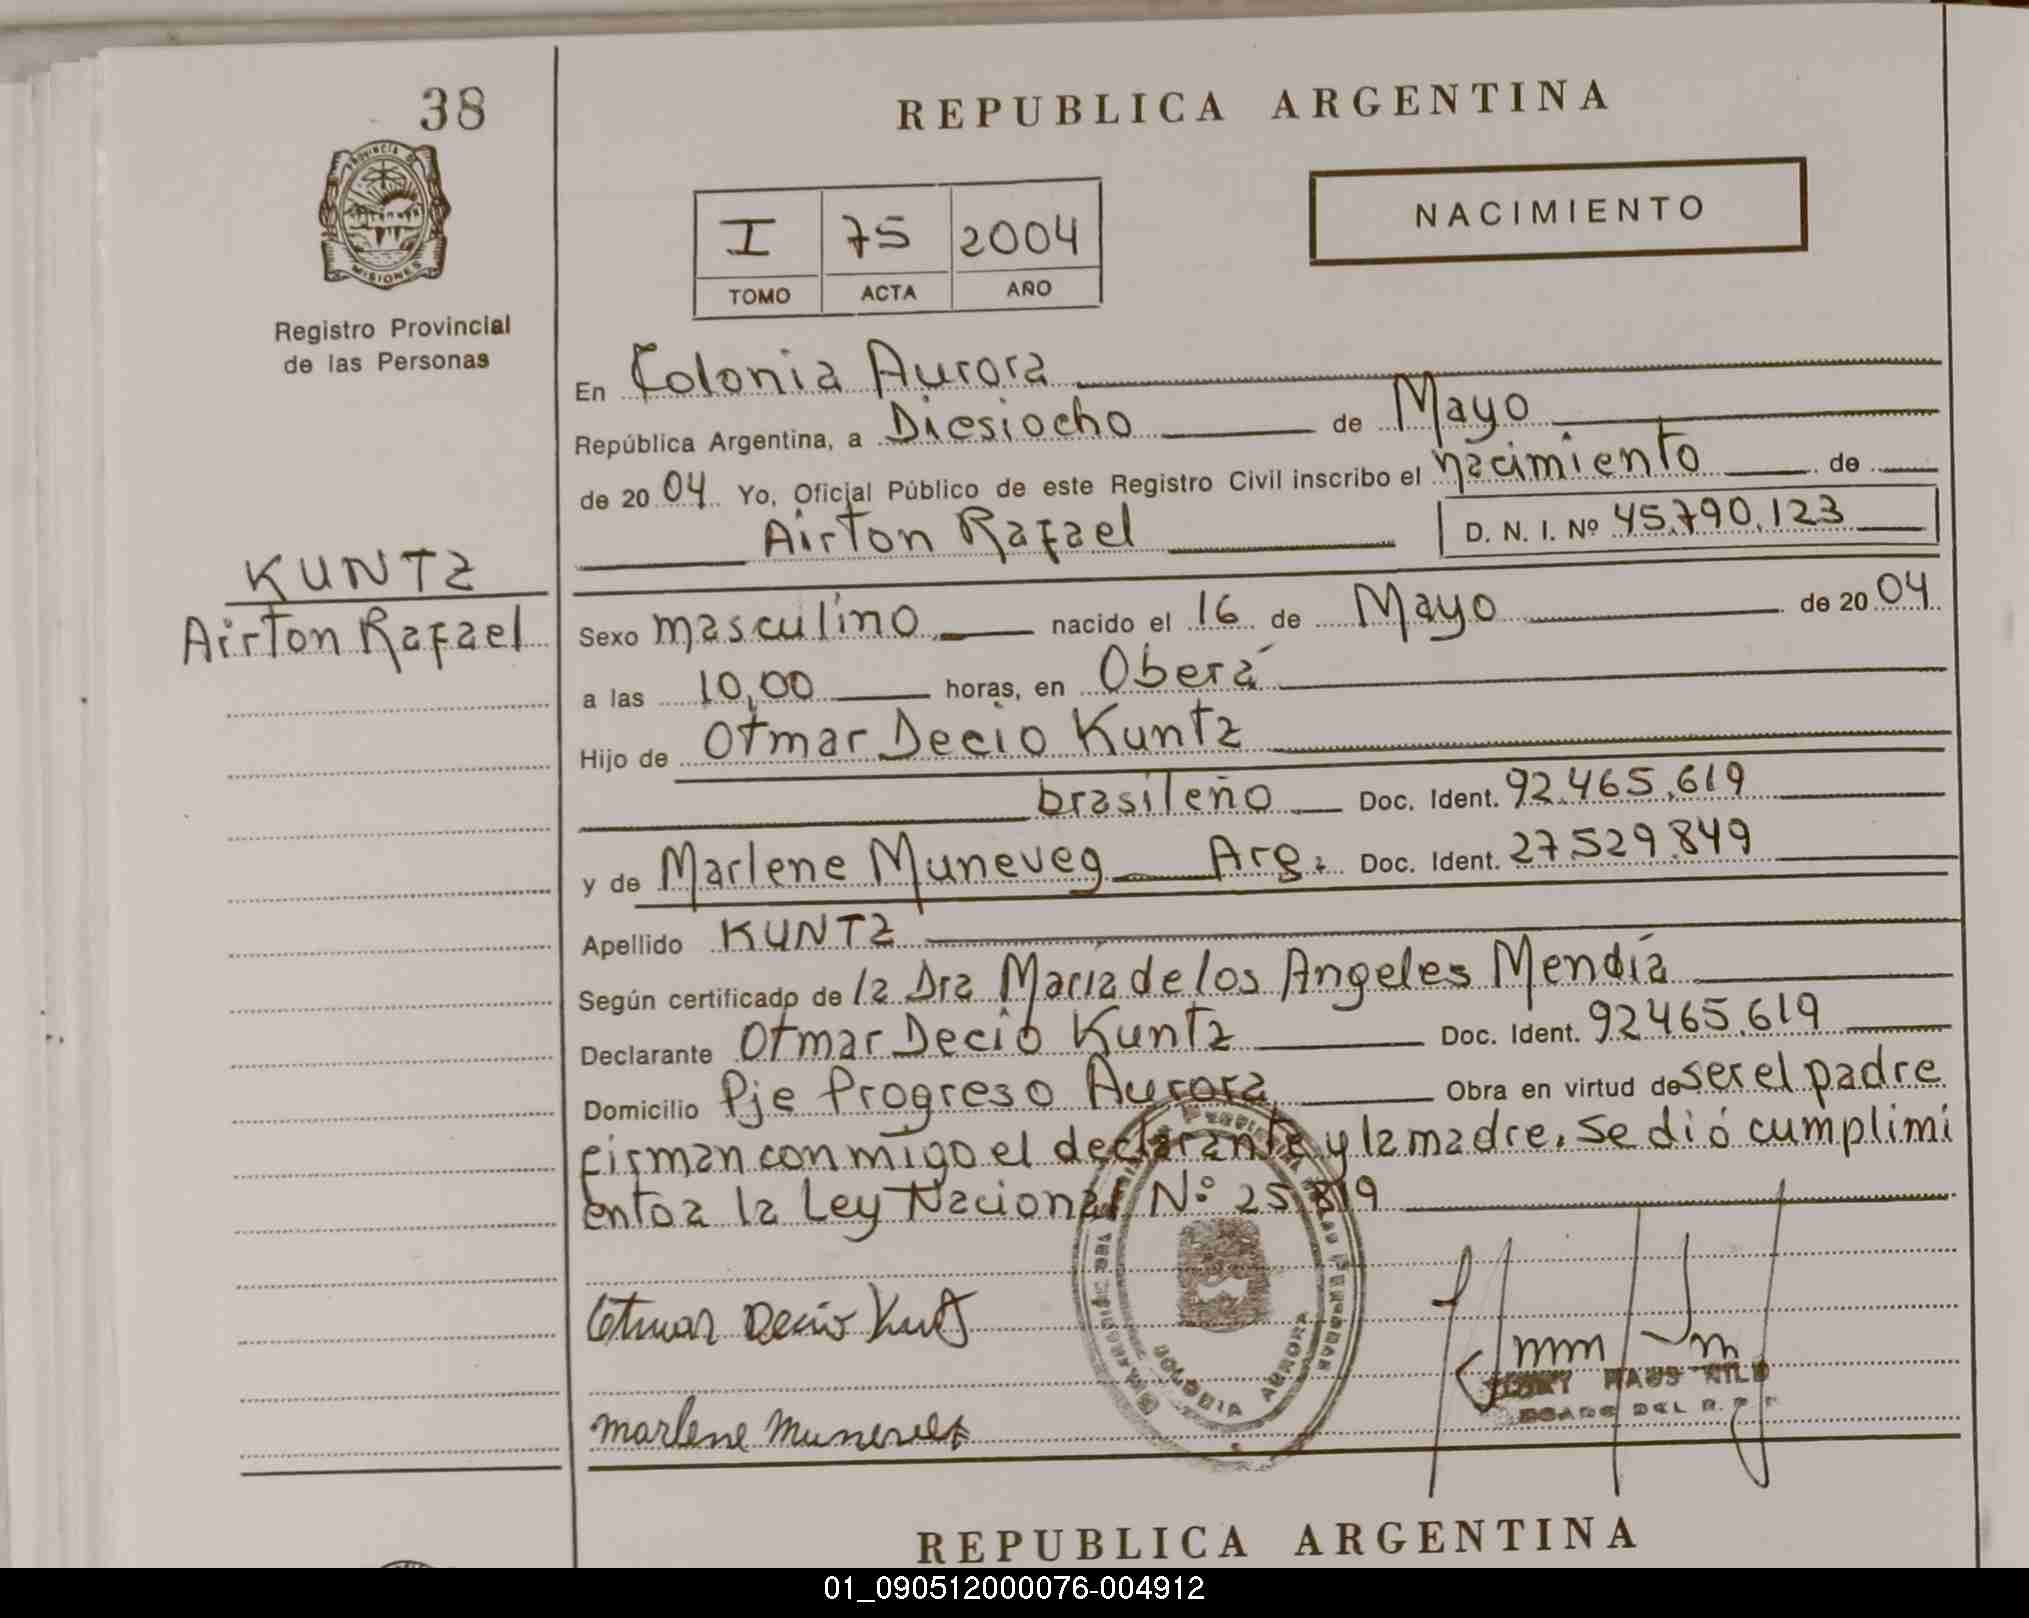 38
PROVINCIA DE
MISIONES
Registro Provincial
de las Personas
KUNTZ
Airton Rafael
REPUBLICA ARGENTINA
NACIMIENTO
I 75 2004
TOMO ACTA AÑO
En Colonia Aurora
República Argentina, a Diesiocho de Mayo
de 20 04 Yo, Oficial Público de este Registro Civil inscribo el nacimiento de
Airton Rafael D. N. I. Nº 45.790.123
Sexo masculino nacido el 16 de Mayo de 20 04
a las 10,00 horas, en Oberá
Hijo de Otmar Decio Kuntz
brasileño Doc. Ident. 92.465.619
y de Marlene Muneveg Arg. Doc. Ident. 27.529.849
Apellido KUNTZ
Según certificado de la Dra María de los Angeles Mendía
Declarante Otmar Decio Kuntz Doc. Ident. 92465.619
Domicilio Pje Progreso Aurora Obra en virtud de ser el padre
firman conmigo el declarante y la madre. Se dió cumplimi
ento a la Ley Nacional Nº 25.819
Otmar Decio Kuntz
COLONIA AURORA
Marlene Muneveg
REPUBLICA ARGENTINA
01_090512000076-004912